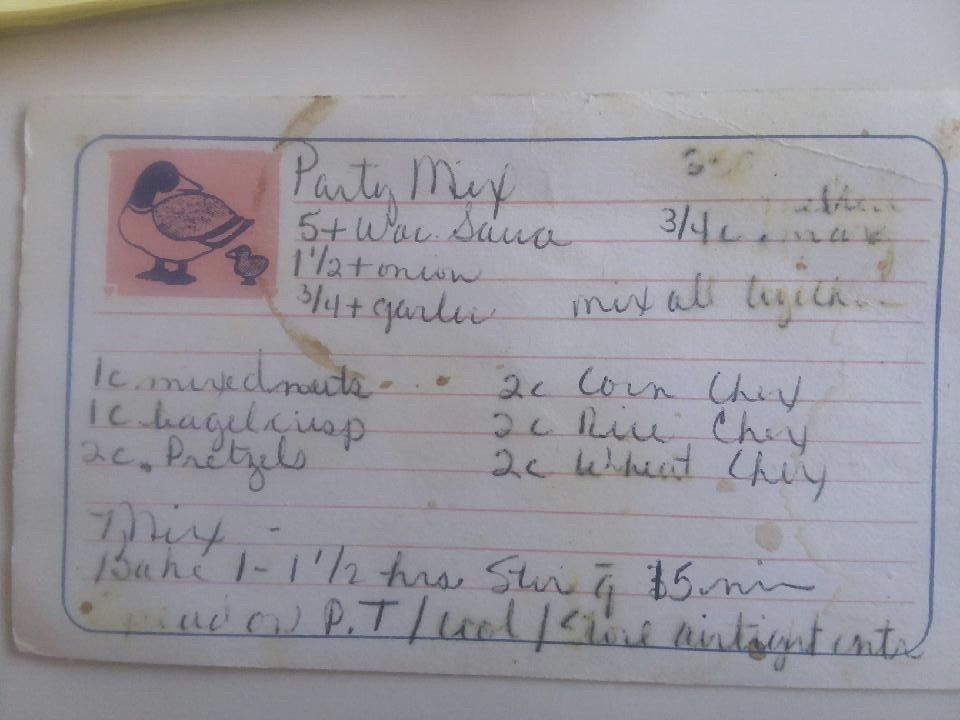 Party Mix
5 t Wor. Sauce 3/4 c.
1 1/2 t onion
3/4 t garlic mix all
1c. mixed nuts 2c Corn Chex
1c. bagel crisp 2c Rice Chex
2c. Pretzels 2c Wheat Chex
Mix -
Bake 1 - 1 1/2 hrs Stir q 15 min
on P.T / cool / Store airtight cntr